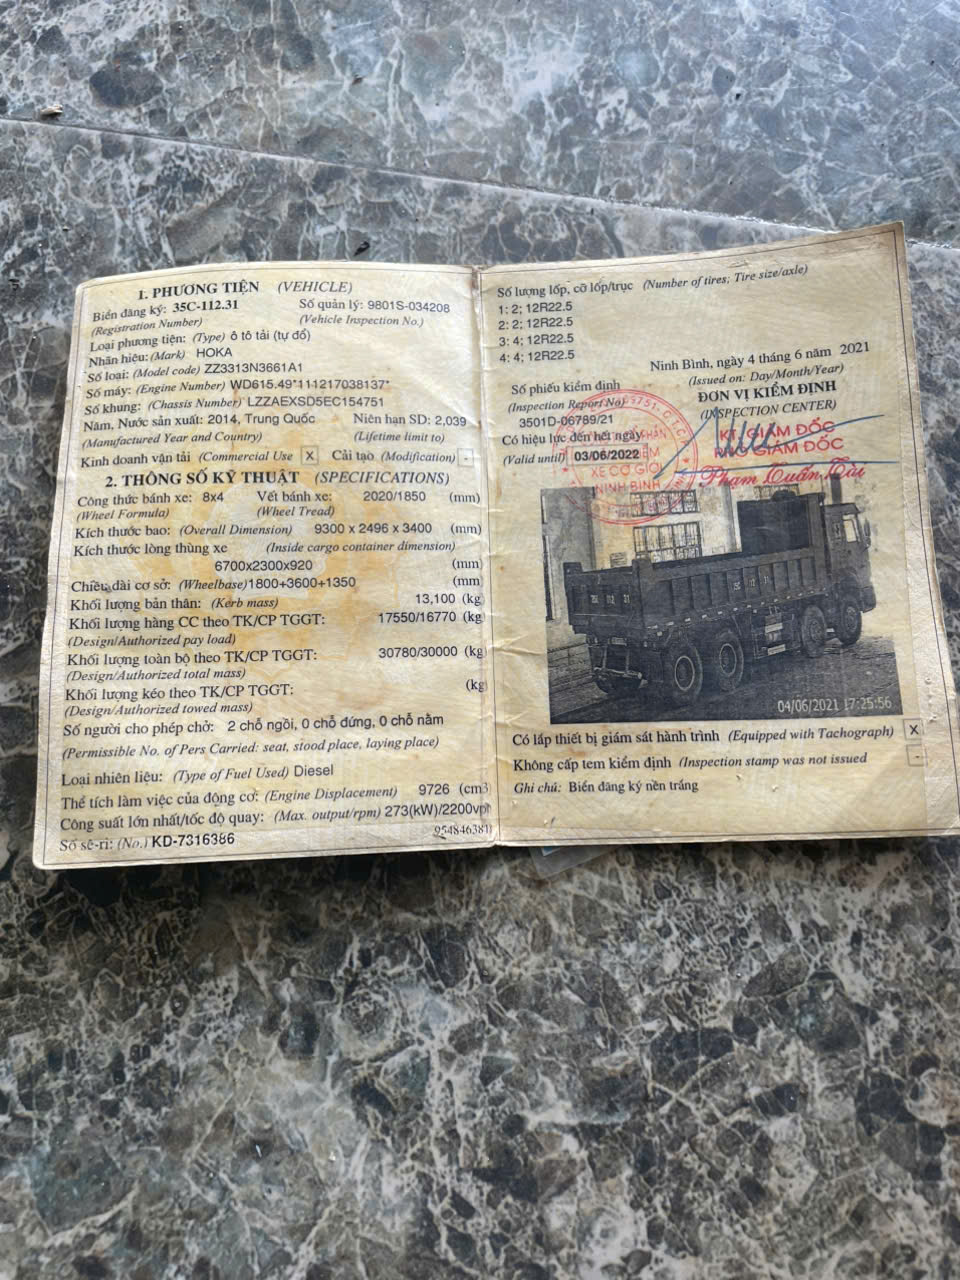 1. PHƯƠNG TIỆN (VEHICLE)
Biển đăng ký: 35C-112.31 Số quản lý: 9801S-034208
(Registration Number) (Vehicle Inspection No.)
Loại phương tiện: (Type) ô tô tải (tự đổ)
Nhãn hiệu: (Mark) HOKA
Số loại: (Model code) ZZ3313N3661A1
Số máy: (Engine Number) WD615.49*111217038137*
Số khung: (Chassis Number) LZZAEXSD5EC154751
Năm, Nước sản xuất: 2014, Trung Quốc Niên hạn SD: 2,039
(Manufactured Year and Country) (Lifetime limit to)
Kinh doanh vận tải (Commercial Use X Cải tạo (Modification) -
2. THÔNG SỐ KỸ THUẬT (SPECIFICATIONS)
Công thức bánh xe: 8x4 Vết bánh xe: 2020/1850 (mm)
(Wheel Formula) (Wheel Tread)
Kích thước bao: (Overall Dimension) 9300 x 2496 x 3400 (mm)
Kích thước lòng thùng xe (Inside cargo container dimension)
6700x2300x920 (mm)
Chiều dài cơ sở: (Wheelbase) 1800+3600+1350 (mm)
Khối lượng bản thân: (Kerb mass) 13,100 (kg
Khối lượng hàng CC theo TK/CP TGGT: 17550/16770 (kg
(Design/Authorized pay load)
Khối lượng toàn bộ theo TK/CP TGGT: 30780/30000 (kg
(Design/Authorized total mass)
Khối lượng kéo theo TK/CP TGGT: (kg
(Design/Authorized towed mass)
Số người cho phép chở: 2 chỗ ngồi, 0 chỗ đứng, 0 chỗ nằm
(Permissible No. of Pers Carried: seat, stood place, laying place)
Loại nhiên liệu: (Type of Fuel Used) Diesel
Thể tích làm việc của động cơ: (Engine Displacement) 9726 (cm3
Công suất lớn nhất/tốc độ quay: (Max. output/rpm) 273(kW)/2200vph
Số sê-ri: (No.) KD-7316386 954846381
Số lượng lốp, cỡ lốp/trục (Number of tires; Tire size/axle)
1: 2; 12R22.5
2: 2; 12R22.5
3: 4; 12R22.5
4: 4; 12R22.5
Ninh Bình, ngày 4 tháng 6 năm 2021
(Issued on: Day/Month/Year)
Số phiếu kiểm định ĐƠN VỊ KIỂM ĐỊNH
(Inspection Report No) (INSPECTION CENTER)
3501D-06789/21
KT. GIÁM ĐỐC
Có hiệu lực đến hết ngày PHÓ GIÁM ĐỐC
(Valid until) 03/06/2022
XE CƠ GIỚI
NINH BÌNH
Phạm Tuấn Tài
35C 112 31
04/06/2021 17:25:56
Có lắp thiết bị giám sát hành trình (Equipped with Tachograph) X
Không cấp tem kiểm định (Inspection stamp was not issued -
Ghi chú: Biển đăng ký nền trắng